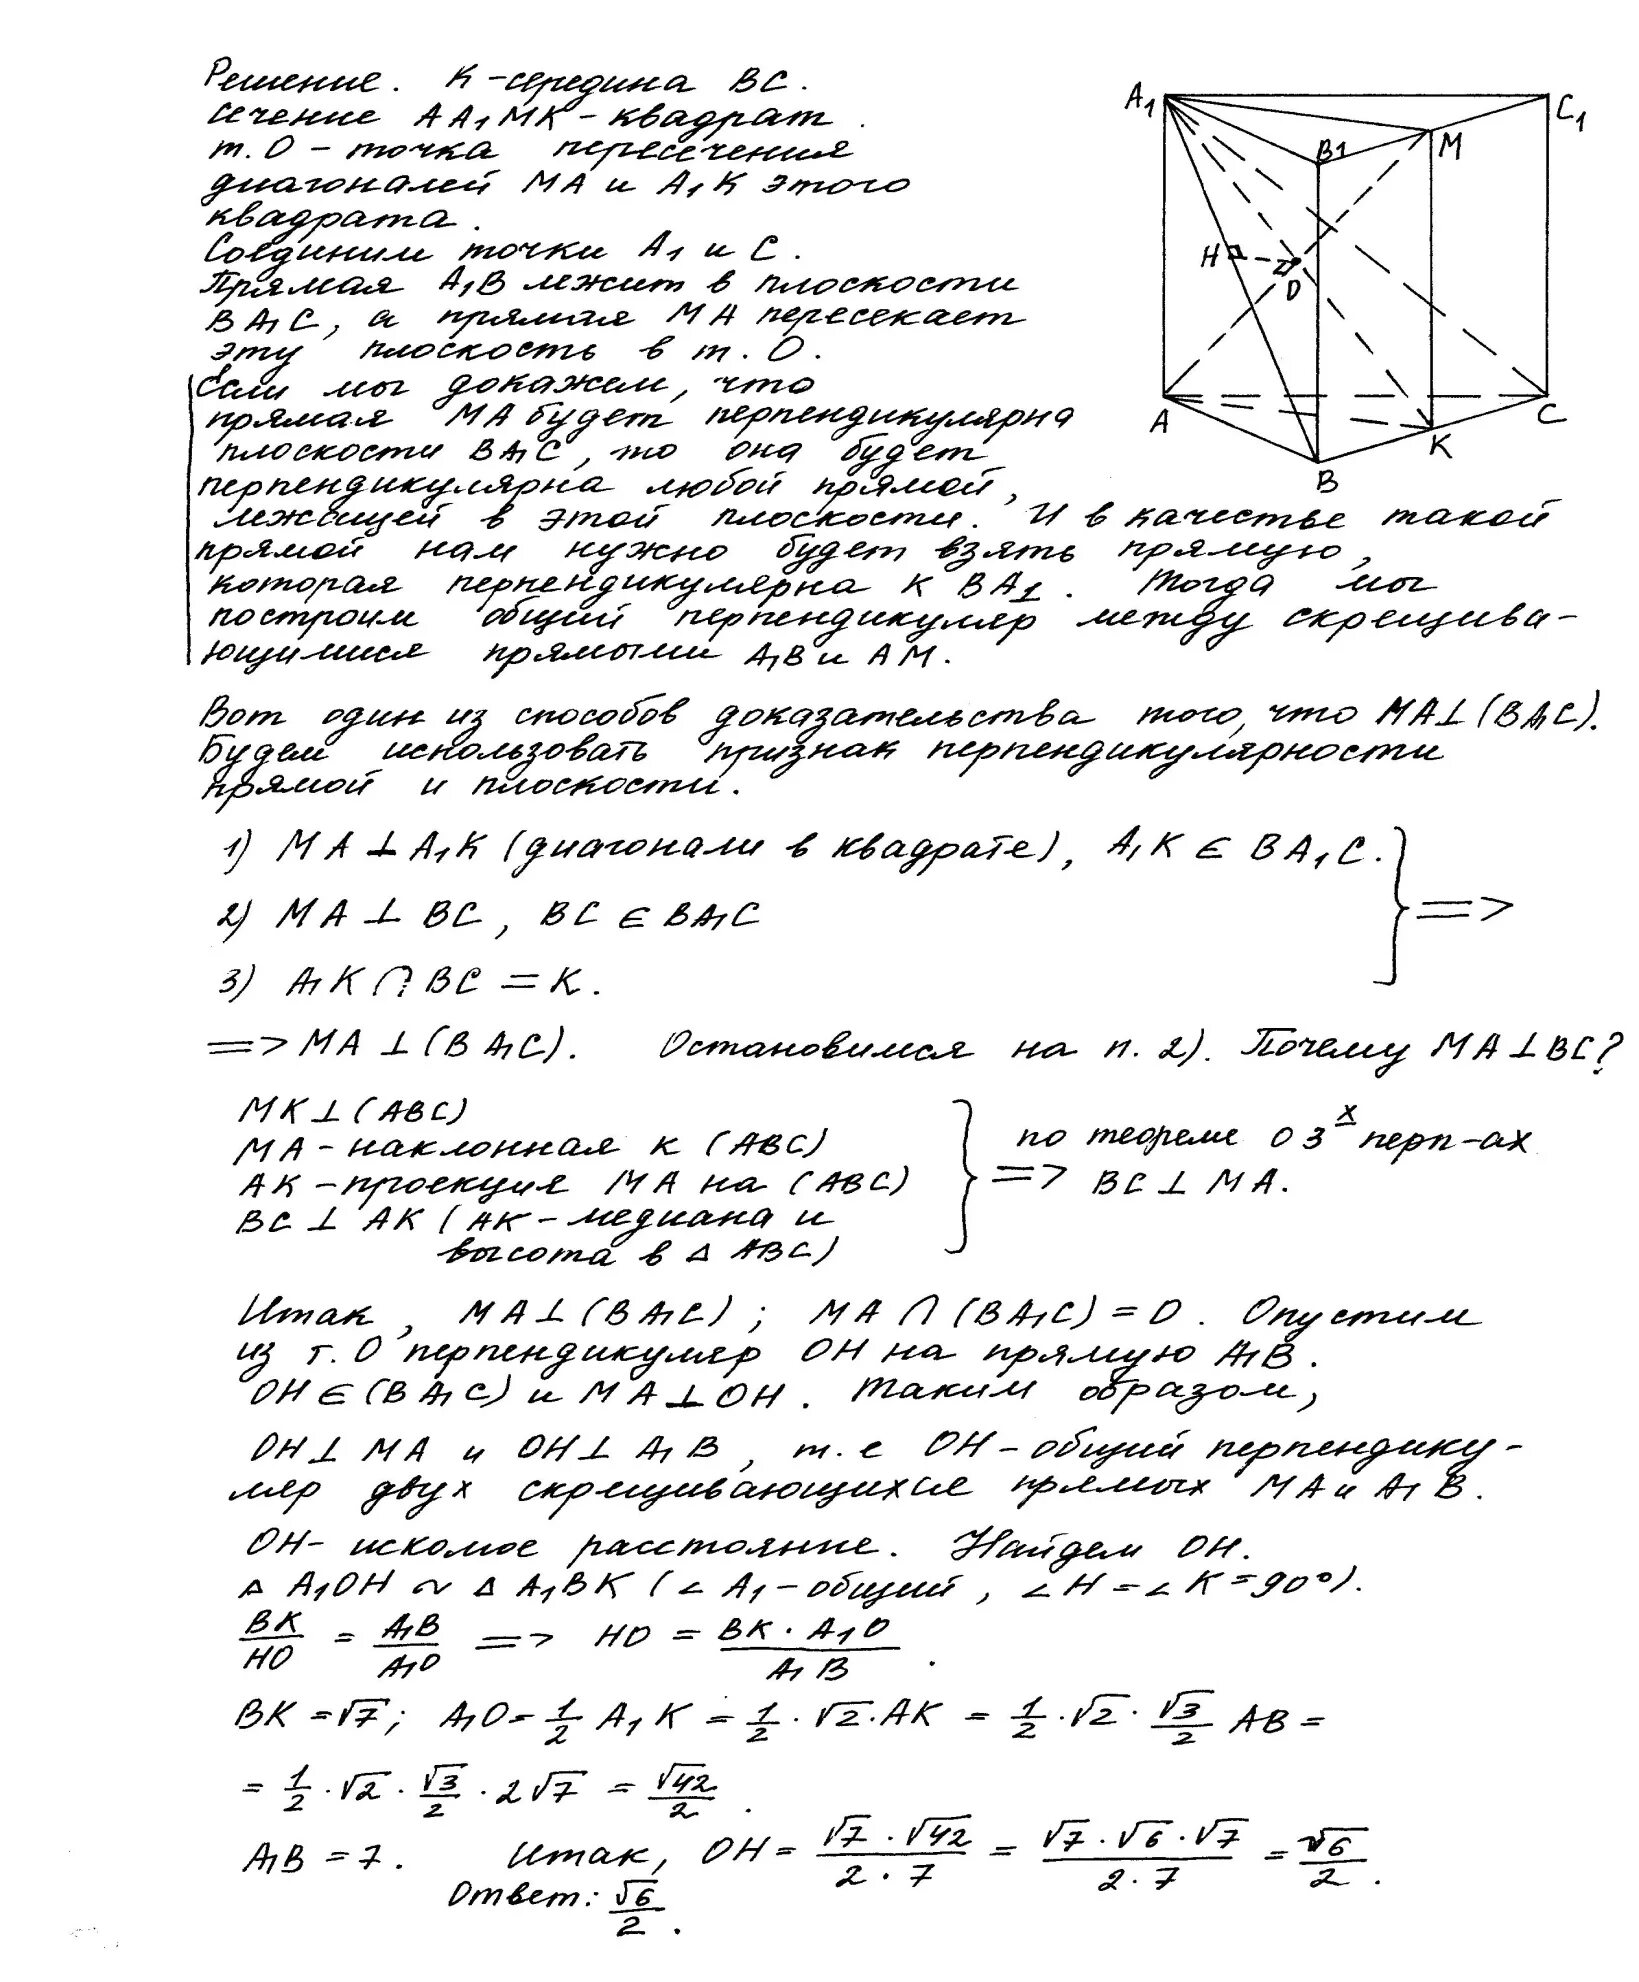 Решение. К - середина ВС.
сечение АА₁МК - квадрат.
т. О - точка пересечения
диагоналей МА и А₁К этого
квадрата.
Соединим точки А₁ и С.
Прямая А₁В лежит в плоскости
ВА₁С, а прямая МА пересекает
эту плоскость в т. О.
Если мы докажем, что
прямая МА будет перпендикулярна
плоскости ВА₁С, то она будет
перпендикулярна любой прямой,
лежащей в этой плоскости. И в качестве такой
прямой нам нужно будет взять прямую,
которая перпендикулярна к ВА₁. Тогда мы
построим общий перпендикуляр между скрещива-
ющимися прямыми А₁В и АМ.
А₁
С₁
В₁
М
Н
О
А
С
К
В
Вот один из способов доказательства того, что МА⊥(ВА₁С).
Будем использовать признак перпендикулярности
прямой и плоскости.
1) МА ⊥ А₁К (диагонали в квадрате), А₁К ∈ ВА₁С.
2) МА ⊥ ВС, ВС ∈ ВА₁С
3) А₁К ∩ ВС = К.
=>
=> МА ⊥ (ВА₁С). Остановимся на п. 2). Почему МА⊥ВС?
МК⊥(АВС)
МА - наклонная к (АВС)
АК - проекция МА на (АВС)
ВС ⊥ АК (АК - медиана и
высота в Δ АВС)
=> по теореме о 3ˣ перп-ах
ВС ⊥ МА.
Итак, МА⊥(ВА₁С); МА ∩ (ВА₁С) = О. Опустим
из т. О перпендикуляр ОН на прямую А₁В.
ОН ∈ (ВА₁С) и МА⊥ОН. Таким образом,
ОН⊥МА и ОН⊥А₁В, т.е ОН - общий перпендику-
ляр двух скрещивающихся прямых МА и А₁В.
ОН - искомое расстояние. Найдем ОН.
Δ А₁ОН ~ Δ А₁ВК (∠ А₁ - общий, ∠Н = ∠К = 90°).
ВК/НО = А₁В/А₁О => НО = ВК · А₁О / А₁В.
ВК = √7; А₁О = 1/2 А₁К = 1/2 · √2 · АК = 1/2 · √2 · √3/2 АВ =
= 1/2 · √2 · √3/2 · 2√7 = √42/2.
А₁В = 7. Итак, ОН = √7 · √42 / 2 · 7 = √7 · √6 · √7 / 2 · 7 = √6/2.
Ответ: √6/2.